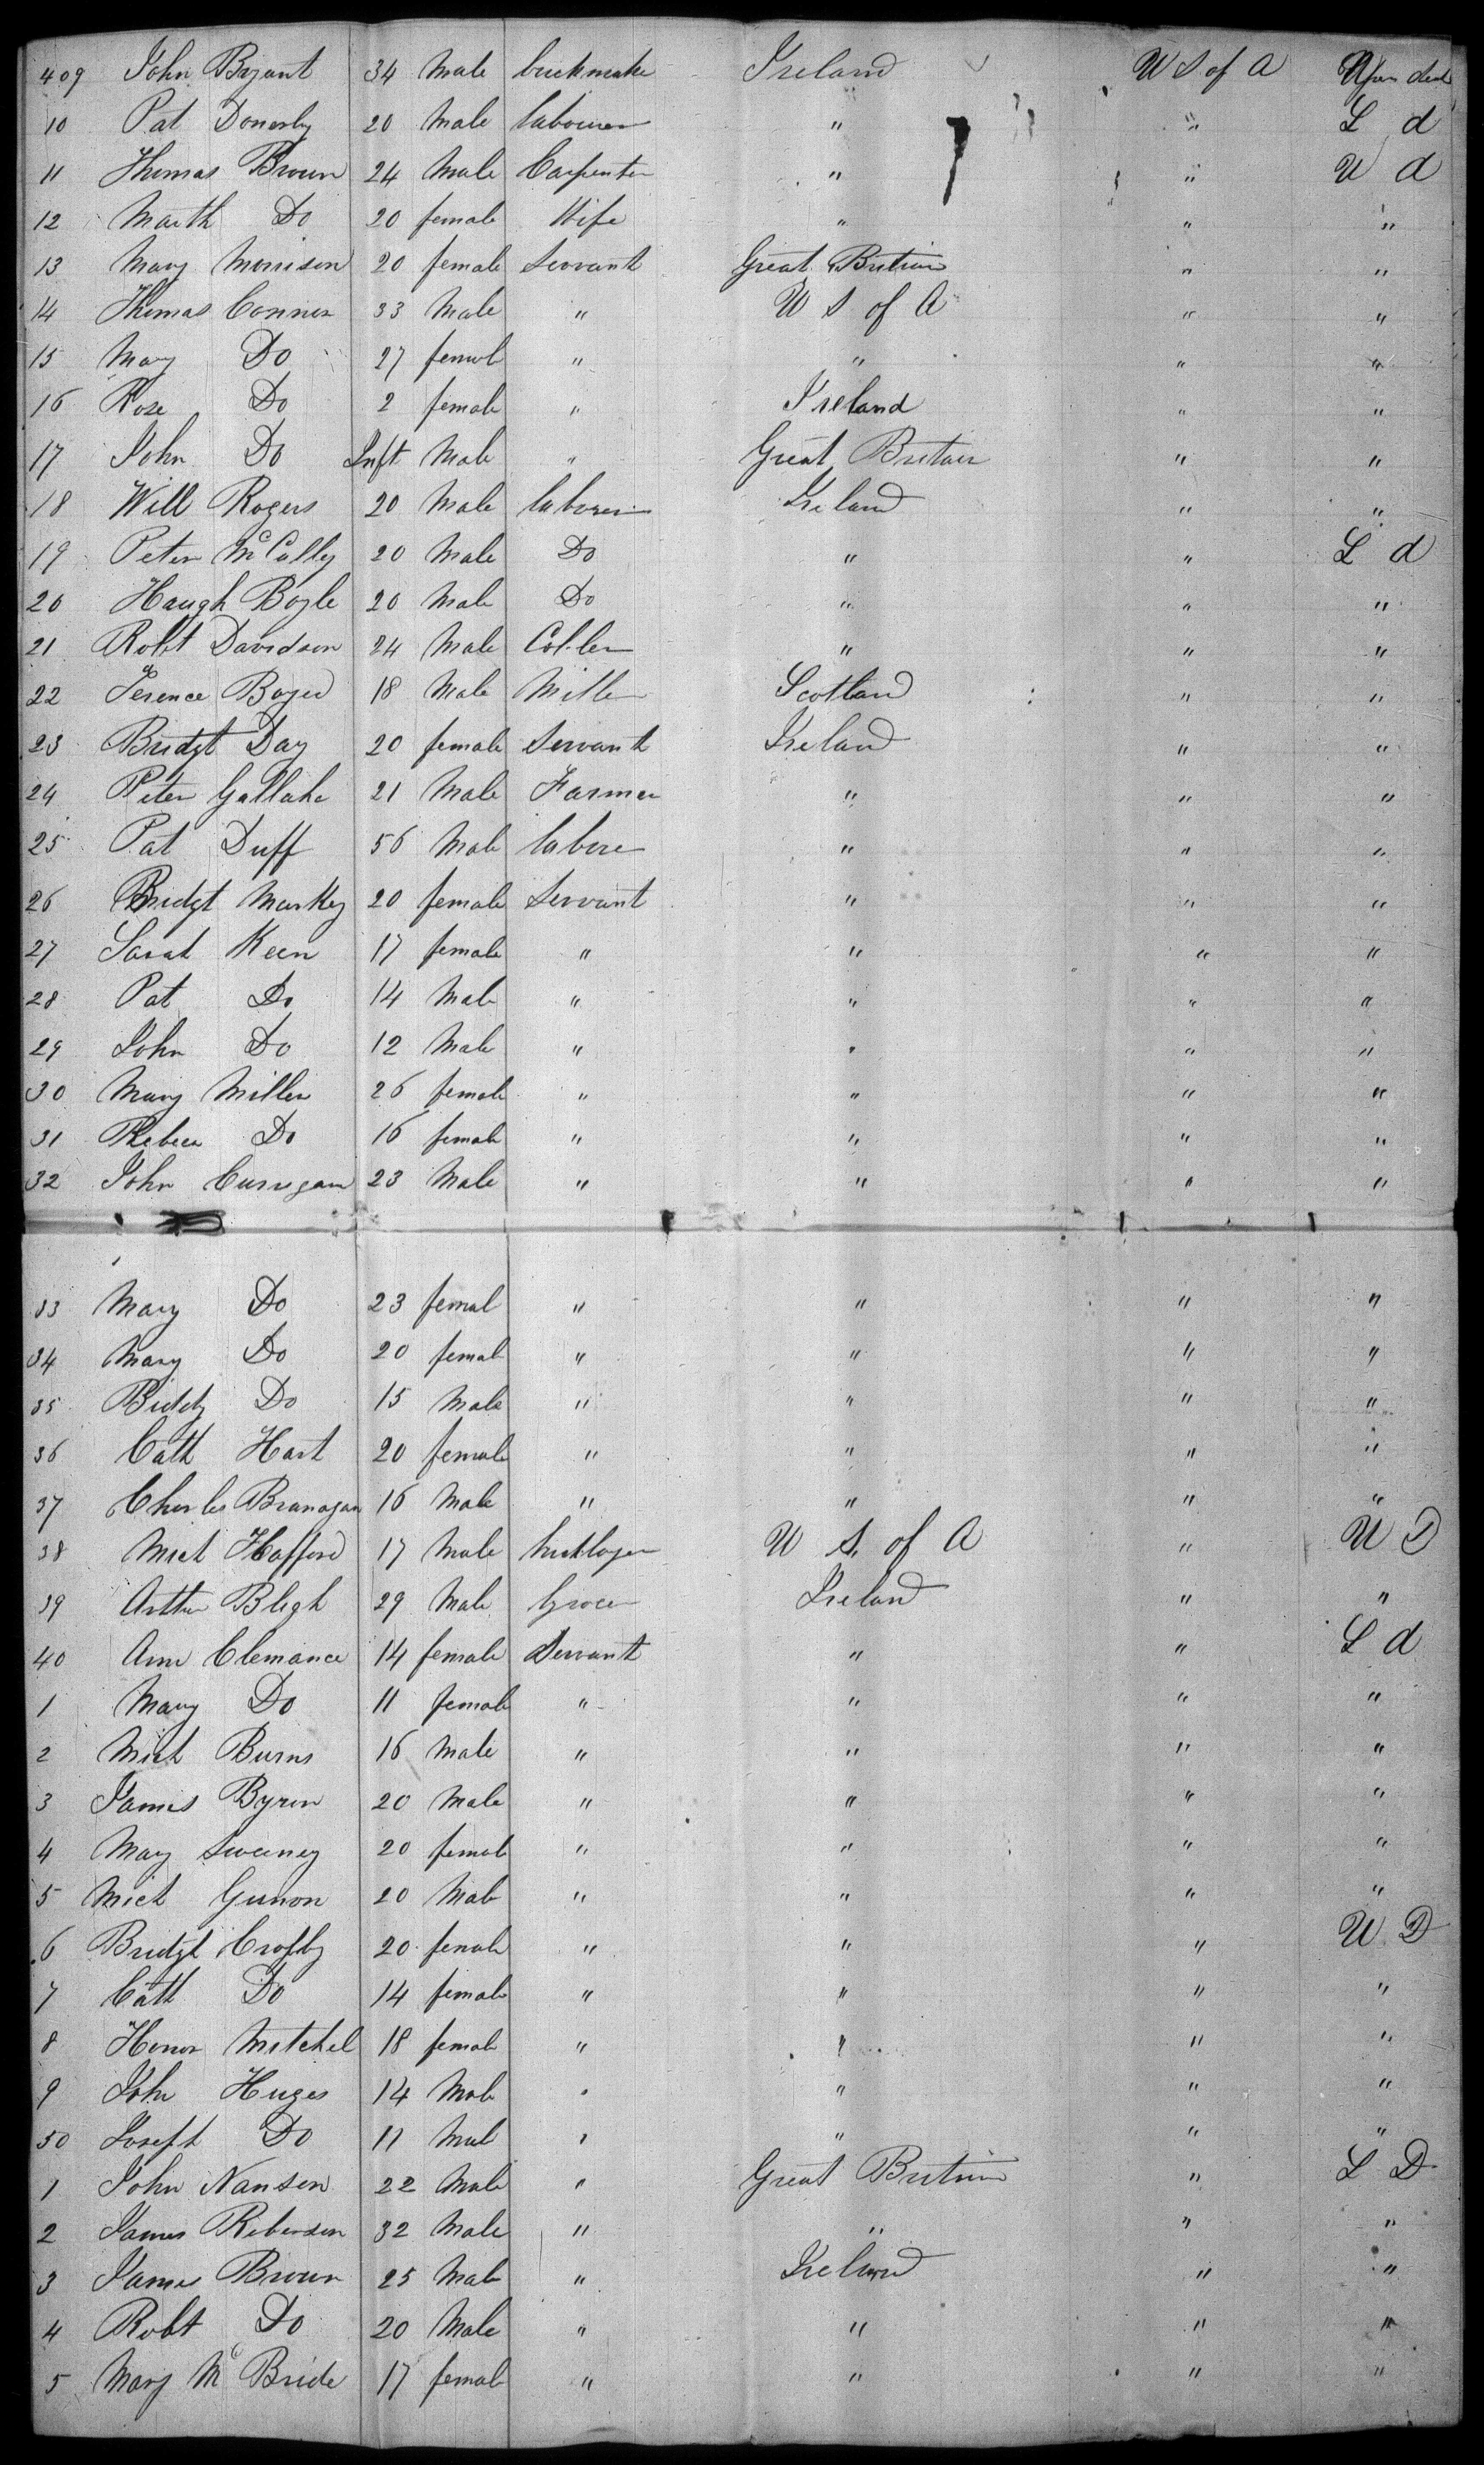 409 John Bryant 34 Male brickmake Ireland U S of A Upr deck
10 Pat Donerly 20 Male labourer " " L d
11 Thomas Brown 24 Male Carpenter " " U d
12 Marth Do 20 female Wife " " "
13 Mary Morrison 20 female Servant Great Britian " "
14 Thomas Connor 33 Male " U S of A " "
15 Mary Do 27 femal " " " "
16 Rose Do 2 female " Ireland " "
17 John Do Inft Male " Great Britain " "
18 Will Rogers 20 Male laborer Ireland " "
19 Peter McCally 20 Male Do " " L d
20 Haugh Boyle 20 Male Do " " "
21 Robt Davidson 24 Male Cobler " " "
22 Terence Boyed 18 Male Miller Scotland " "
23 Bridgt Day 20 female Servant Ireland " "
24 Peter Gallahe 21 Male Farmer " " "
25 Pat Duff 56 Male labore " " "
26 Bridgt Markey 20 female Servant " " "
27 Sarah Keen 17 female " " " "
28 Pat Do 14 Male " " " "
29 John Do 12 Male " " " "
30 Mary Miller 26 female " " " "
31 Rebeca Do 16 female " " " "
32 John Currigan 23 Male " " " "
33 Mary Do 23 femal " " " "
34 Mary Do 20 femal " " " "
35 Biddy Do 15 Male " " " "
36 Cath Hart 20 female " " " "
37 Charles Branagan 16 Male " " " "
38 Mich Hafford 17 Male U S of A " U D
39 Arthur Bligh 29 Male Grocer Ireland " "
40 Ann Clemance 14 female Servant " " L d
1 Mary Do 11 female " " " "
2 Mich Burns 16 Male " " " "
3 James Byron 20 Male " " " "
4 Mary Sweeney 20 female " " " "
5 Mich Gunon 20 Male " " " "
6 Bridgt Crofty 20 female " " " U D
7 Cath Do 14 female " " " "
8 Honor Mitchel 18 female " " " "
9 John Huges 14 Male " " " "
50 Joseph Do 11 Mal " " " "
1 John Nanson 22 Male " Great Britian " L D
2 James Roberson 32 Male " " " "
3 James Brown 25 Male " Ireland " "
4 Robt Do 20 Male " " " "
5 Mary McBride 17 female " " " "